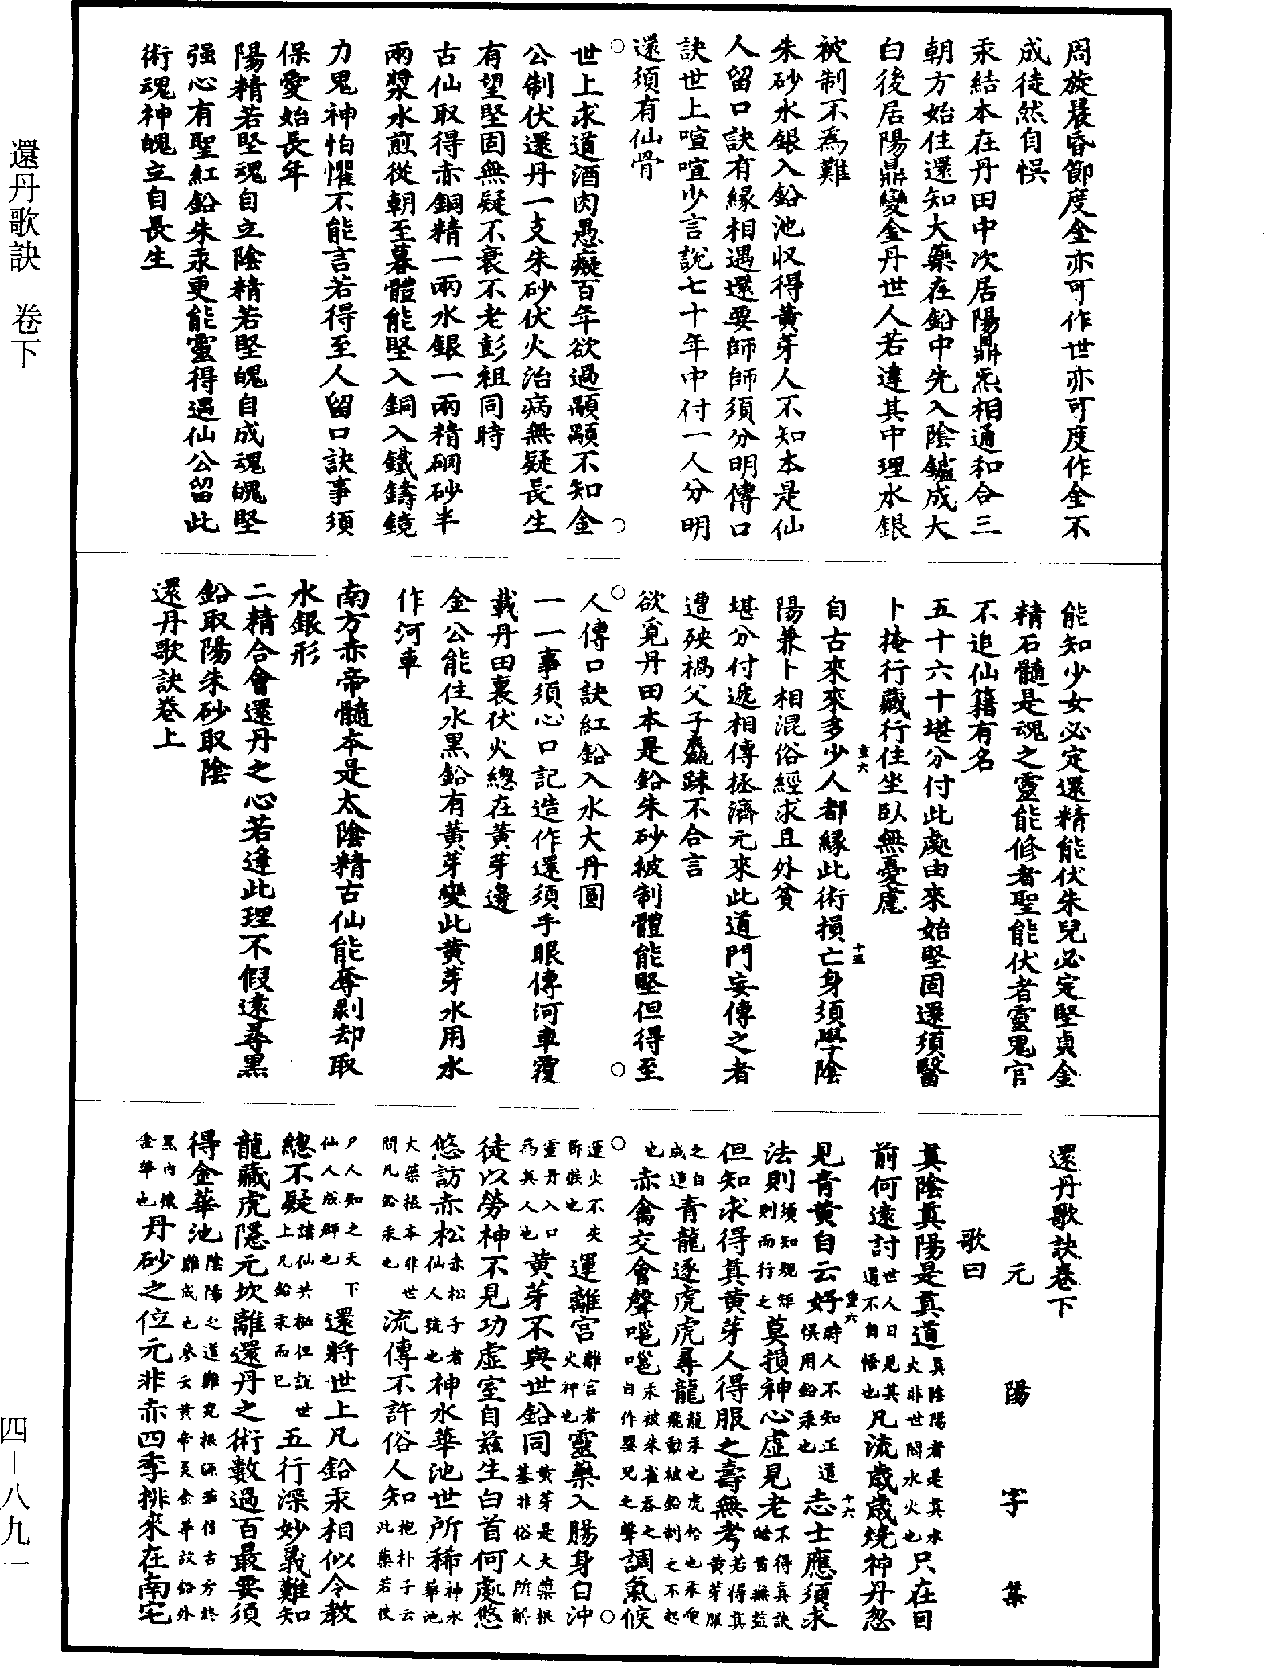 還丹歌訣 卷下
四—八九一
周旋晨昏節度全亦可作世亦可度作全不
成徒然自悞
汞結本在丹田中次居陽鼎炁相通和合三
朝方始住還知大藥在鉛中先入陰鑪成大
白後居陽鼎變金丹世人若違其中理水銀
被制不為難
朱砂水銀入鉛池収得黃芽人不知本是仙
人留口訣有緣相遇還要師師須分明傳口
訣世上喧喧少言說七十年中付一人分明
還須有仙骨
世上求道酒肉愚癡百年欲過顒顒不知金
公制伏還丹一支朱砂伏火治病無疑長生
有望堅固無疑不衰不老彭祖同時
古仙取得赤銅精一兩水銀一兩精硇砂半
兩漿水煎從朝至暮體能堅入銅入鐵鑄鏡
力鬼神怕懼不能言若得至人留口訣事須
保愛始長年
陽精若堅魂自立陰精若堅魄自成魂魄堅
强心有聖紅鉛朱汞更能靈得遇仙公留此
術魂神魄立自長生
能知少女必定還精能伏朱兒必定堅貞金
精石髓是魂之靈能修者聖能伏者靈鬼官
不追仙籍有名
五十六十堪分付此處由來始堅固還須醫
卜掩行藏行住坐臥無憂慮
自古來來多少人都緣此術損亡身須學陰
陽兼卜相混俗經求且外貧
堪分付遞相傳拯濟元來此道門妄傳之者
遭殃禍父子麤踈不合言
欲覓丹田本是鉛朱砂被制體能堅但得至
人傳口訣紅鉛入水大丹圓
一一事須心口記造作還須手眼傳河車覆
載丹田裏伏火總在黃芽邊
金公能住水黑鉛有黃芽變此黃芽水用水
作河車
南方赤帝髓本是太陰精古仙能奪剝却取
水銀形
二精合會還丹之心若逢此理不假遠尋黑
鉛取陽朱砂取陰
還丹歌訣卷上
還丹歌訣卷下
元陽子集
歌曰
真陰真陽是真道真陰陽者是真水火非世間水火也只在目
前何遠討世人日見其道不自悟也凡流歲歲燒神丹忽
見青黃自云好時人不知正道悮用鉛汞也志士應須求
法則須知規矩則而行之莫損神心虛見老不得真訣皓首無益
但知求得真黃芽人得服之壽無考若得真黃芽服
之白日成道也青龍逐虎虎尋龍龍汞也虎鉛也汞便飛動被鉛制之不起
赤禽交會聲嗈嗈汞被朱雀吞之自作嬰兒之聲調氣候
運火不失節候也運離宮離宮者火神也靈藥入腸身自沖
靈丹入口為真人也黃芽不與世鉛同黃芽是大藥根基非俗人所解
徒以勞神不見功虛室自茲生白首何處悠
悠訪赤松赤松子者仙人號也神水華池世所稀神水華池
大藥根本非世間凡鉛汞也流傳不許俗人知抱朴子云此藥若使
尸人知之天下仙人成群也還將世上凡鉛汞相似令教
總不疑諸仙共秘但說世上凡鉛汞而已五行深妙義難知
龍藏虎隱元坎離還丹之術數過百最要須
得金華池陰陽之道難究根源雖信古方終難成也參云黃帝美金華故鉛外
黑內懷金華也丹砂之位元非赤四季排來在南宅